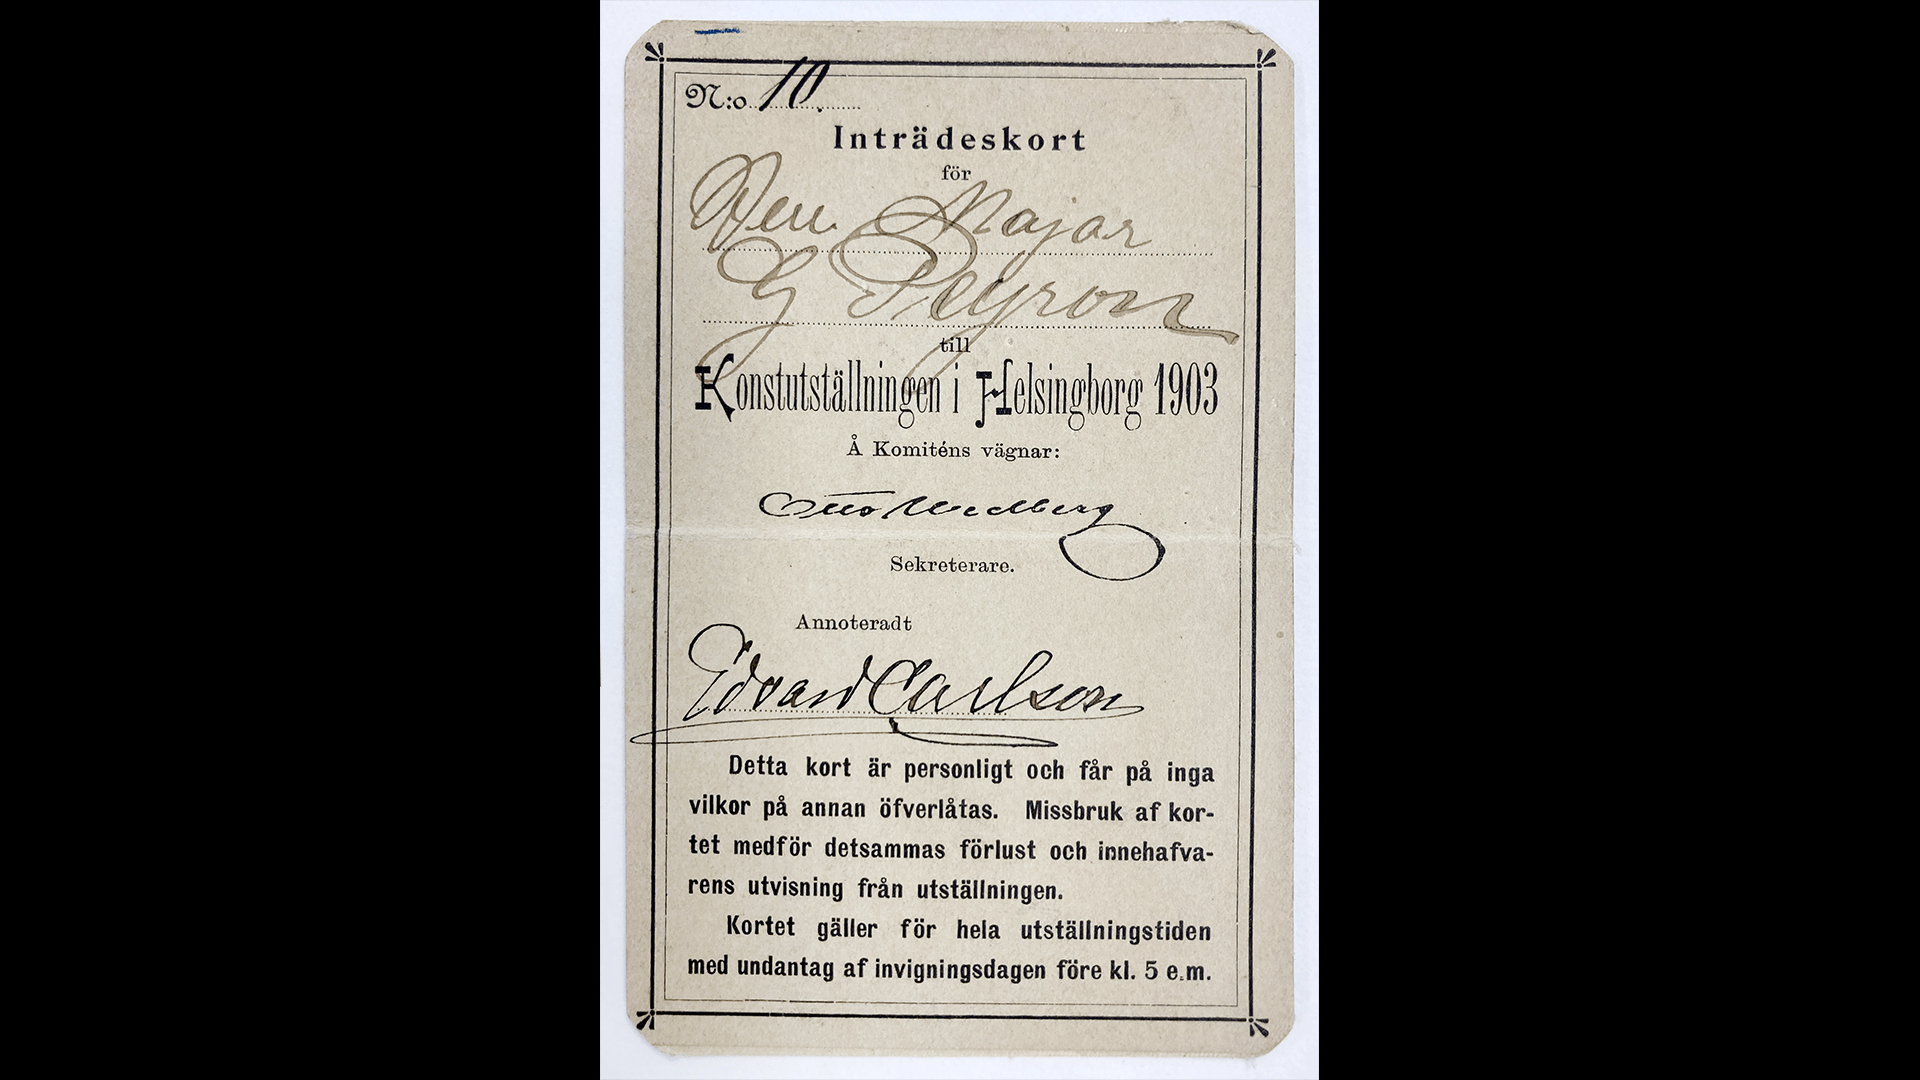 N:o 10.
Inträdeskort
för
Herr Major
G Peyron
till
Konstutställningen i Helsingborg 1903
Å Komiténs vägnar:
Otto Wedberg
Sekreterare.
Annoteradt
Edvard Carlson
Detta kort är personligt och får på inga
vilkor på annan öfverlåtas. Missbruk af kor-
tet medför detsammas förlust och innehafva-
rens utvisning från utställningen.
Kortet gäller för hela utställningstiden
med undantag af invigningsdagen före kl. 5 e.m.